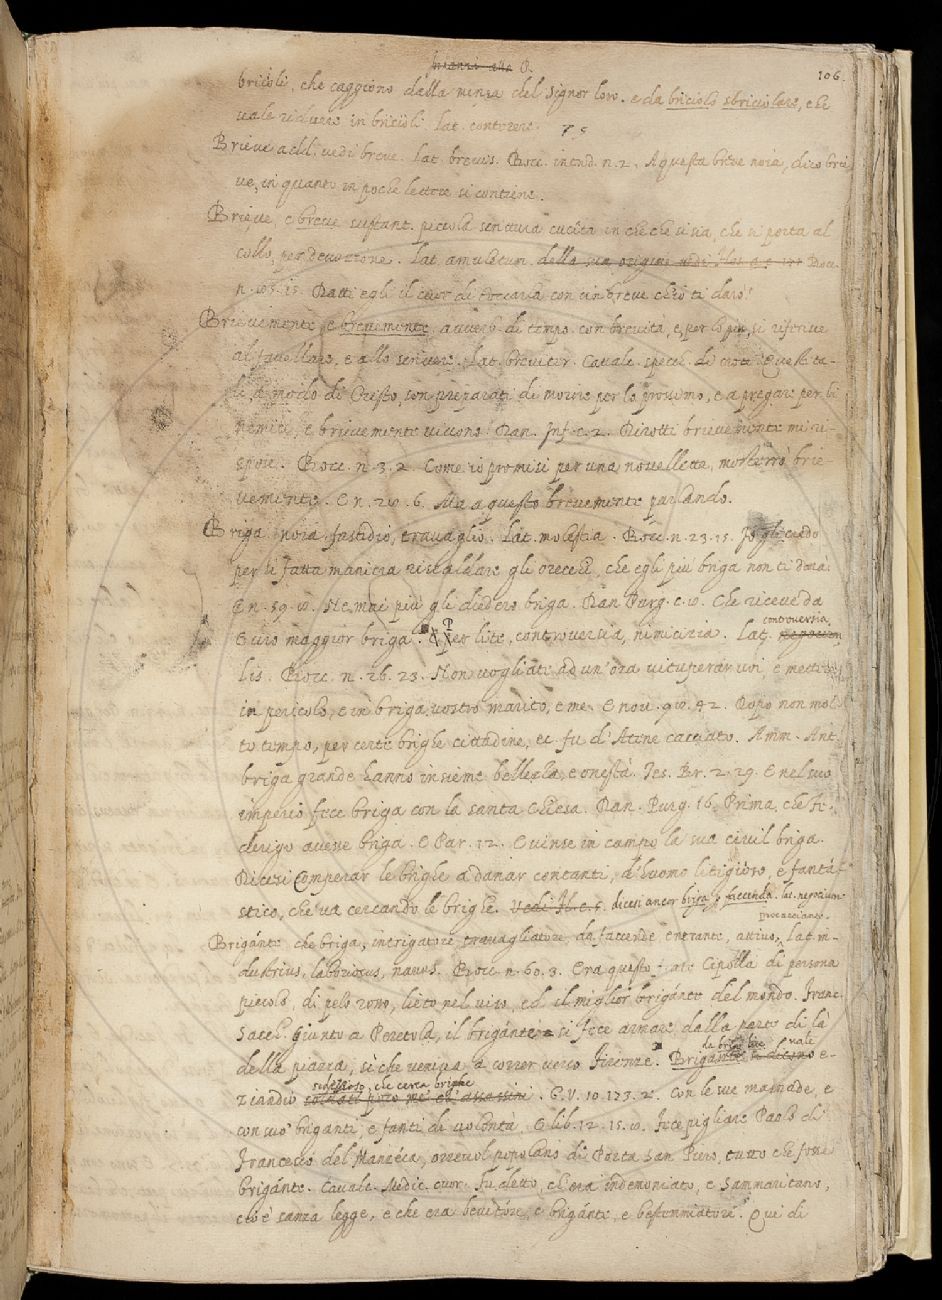 106.
bricioli, che caggiono dalla mensa del Signor loro. e da briciolo sbriciolare, che
vale ridurre in bricioli. Lat. conterere. 75
Brieve add. vedi breve. Lat. brevis. Bocc. introd. n. 2. A questa breve noia, dico brie
ve, in quanto in poche lettere si contiene.
Brieve, e breve sustant. piccola scrittura cucita in che che si sia, che si porta al
collo, per devozione. Lat. amuletum. della sua origine vedi Bocc.
n. 85. 15. Datti egli il cuor di toccarla con un breve ch'io ti darò?
Brievemente, e brevemente, avverb. di tempo. con brevità, e, per lo più, si riferisce
al favellare, e allo scrivere. Lat. breviter. Cavalc. specc. di croce. Questi ta-
li, a modo di Cristo, son preparati di morire per lo prossimo, e a pregare per li
nemici, e brievemente vivono. Dan. Inf. c. 2. Dirotti brievemente mi ri-
spose. Bocc. n. 3. 2. Come io promisi per una novelletta, mosterrò brie-
vemente. E n. 20. 6. Ma a questo brevemente parlando.
Briga. noia, fastidio, travaglio. Lat. molestia. Bocc. n. 23. 15. Io gli credo
per sì fatta maniera riscaldare gli orecchi, che egli più briga non ti darà.
E n. 59. Ne mai più gli diedero briga. Dan. Purg. c. Che riceve da
Euro maggior briga. ¶ Per lite, controversia, nimicizia. Lat. controversia,
lis. Bocc. n. 26. 23. Non vogliate ad un'ora vituperar voi, e mettere
in pericolo, e in briga vostro marito, e me. E nov. 42. Dopo non mol-
to tempo, per certe brighe cittadine, fu d'Atene cacciato. Amm. Ant.
briga grande hanno insieme bellezza, e onestà. Tes. Br. 2. 29. E nel suo
imperio fece briga con la santa Chiesa. Dan. Purg. 16. Prima, che Fe-
derigo avesse briga. E Par. 12. E vinse in campo la sua civil briga.
Dicesi Comperar le brighe a danar contanti, d'huomo litigioso, e fantá-
stico, che va cercando le brighe. dicesi ancor briga p. faccenda. lat. negotium
procacciante.
Brigánte che briga, intrigatore travagliatore, da faccende entrante, attivo, Lat. in-
dustrius, laboriosus, navus. Bocc. n. 60. 3. Era questo frate Cipolla di persona
piccolo, di pelo rosso, lieto nel viso, ed il miglior brigánte del mondo. Franc.
Sacch. Giunto a Peretola, il brigante si fece armare dalla parte di là
della piazza, sì che veniva a correr verso Firenze. Brigánte da brighe vale e-
ziandio sedizioso, che cerca brighe soldati poco me ch'assassini. G.V. 10. 173. 2. Con le sue masnade, e
con suo' briganti, e fanti di volontà. E lib. 12. 15. Fece pigliare Paolo di
Francesco del Manzeca, orrevol popolano di Porta San Piero, tutto che fosse
brigánte. Cavalc. Medic. cuor. Fu detto, ch'era indemoniato, e Sammaritano,
cioè sanza legge, e che era bevitore, e brigánte, e bestemmiatore. Qui di